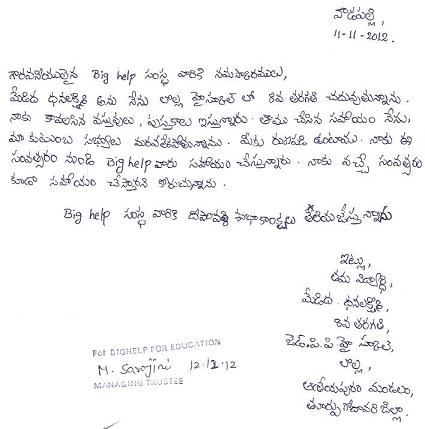 వాడపల్లి,
11-11-2012.
గౌరవనీయులైన Big help సంస్థ వారికి నమస్కారములు,
మేడిద ధనలక్ష్మి అను నేను లొల్ల హైస్కూల్ లో 8వ తరగతి చదువుతున్నాను.
నాకు కావలసిన వస్తువులు, పుస్తకాలు ఇస్తున్నారు. తాము చేసిన సహాయం నేను,
మా కుటుంబ సభ్యులు మరచిపోలేకున్నాము. మీకు రుణపడి ఉంటాము. నాకు ఈ
సంవత్సరం నుండి Big help వారు సహాయం చేస్తున్నారు. నాకు వచ్చే సంవత్సరం
కూడా సహాయం చేస్తారని కోరుచున్నాను.
Big help సంస్థ వారికి దీపావళి శుభాకాంక్షలు తెలియజేస్తున్నాను
ఇట్లు,
తమ విద్యార్థి,
మేడిద. ధనలక్ష్మి,
8వ తరగతి,
జెడ్.పి.పి హై స్కూల్,
లొల్ల,
ఆత్రేయపురం మండలం,
తూర్పు గోదావరి జిల్లా.
For BIGHELP FOR EDUCATION
M. Sarojini 12.12.12
MANAGING TRUSTEE